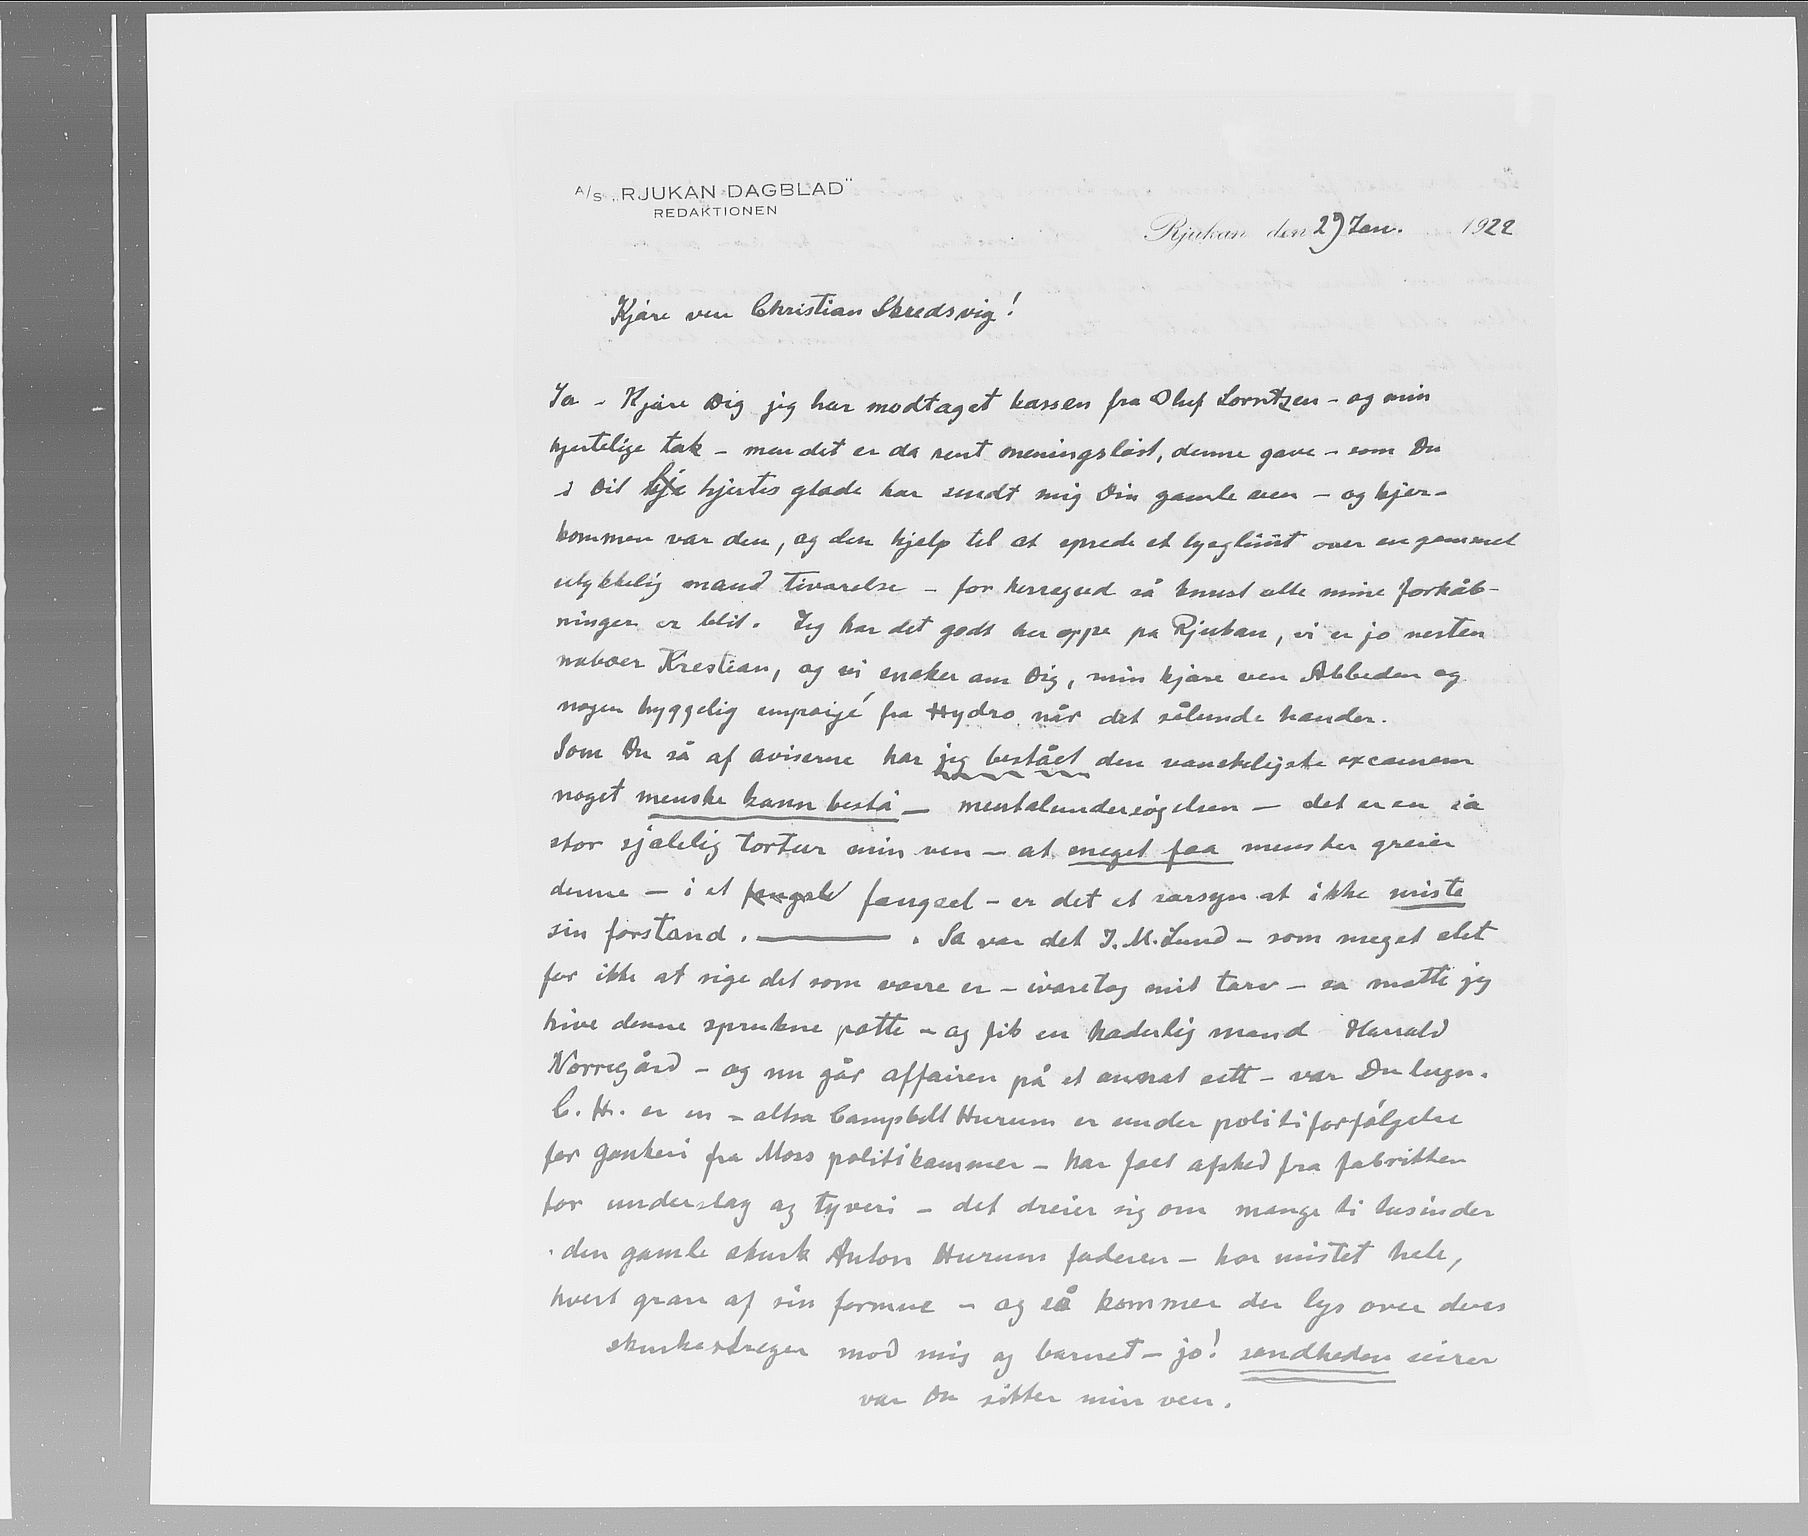 A/S „RJUKAN DAGBLAD"
REDAKTIONEN
Rjukan den 29 Jan. 1922
Kjære ven Christian Skredsvig!
Ja - Kjære Dig jeg har modtaget kassen fra Oluf Lorntzen - og min
hjertelige tak - men det er da rent meningsløst, denne gave - som Du
i Dit hjertes glæde har sendt mig Din gamle ven - og kjer-
kommen var den, og den hjælp til at sprede et lysglimt over en gammel
ulykkelig mand tivarelse - for herregud så knust alle mine forhåb-
ninger er blit. Jeg har det godt her oppe på Rjukan, vi er jo nesten
naboer Krestian, og vi snaker om Dig, min kjære ven Abbeden og
nogen hyggelig fra Hydro når det sålunde hænder.
Som Du så af aviserne har jeg bestået den vanskeligste excamen
noget menske kann bestå - mentalundersøgelsen - det er en så
stor sjælelig tortur min ven - at meget faa mensker greier
denne - i et fængsel - er det et særsyn at ikke miste
sin forstand. ——— . Så var det J. M. Lund - som meget slet
for ikke at sige det som værre er - ivaretog mit tarv - så måtte jeg
hive denne sprukne potte - og fik en hæderlig mand Harald
Nørregård - og nu går affairen på et annat sett - vær Du lugn.
C. H. er en - altså Campbell Hurum er under politiforfølgelse
for fra Moss politikammer - har fået afsked fra fabrikken
for underslag og tyveri - det dreier sig om mange ti tusinder
. den gamle skurk Anton Hurum faderen - har mistet hele,
hvert gran af sin formue - og så kommer der lys over deres
skurkestreger mod mig og barnet - jo! sandheden seirer
var Du sikker min ven.